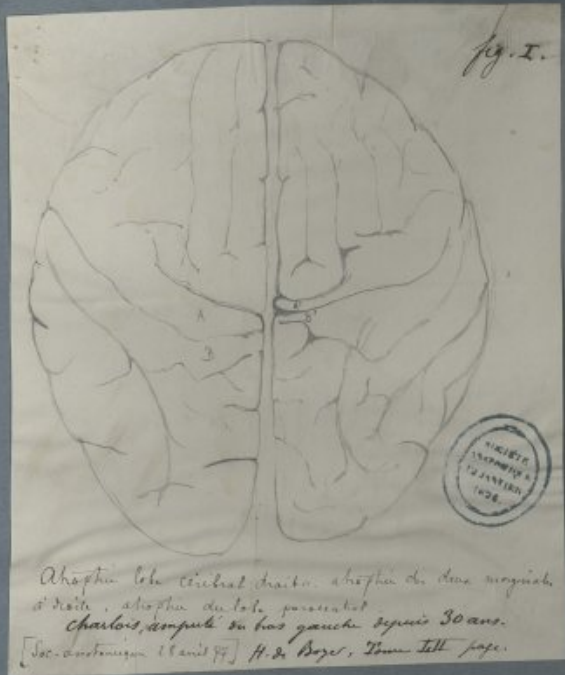 fig. I.
A
B
SOCIÉTÉ
ANATOMIQUE
12 JANVIER
1826.
Atrophie lobe cérébral droit. atrophie des deux marginales
à droite, atrophie du lobe paracentral
Charlois, amputé du bras gauche depuis 30 ans.
[Soc. anatomique avril 77] H. de Boyer, Tome page.